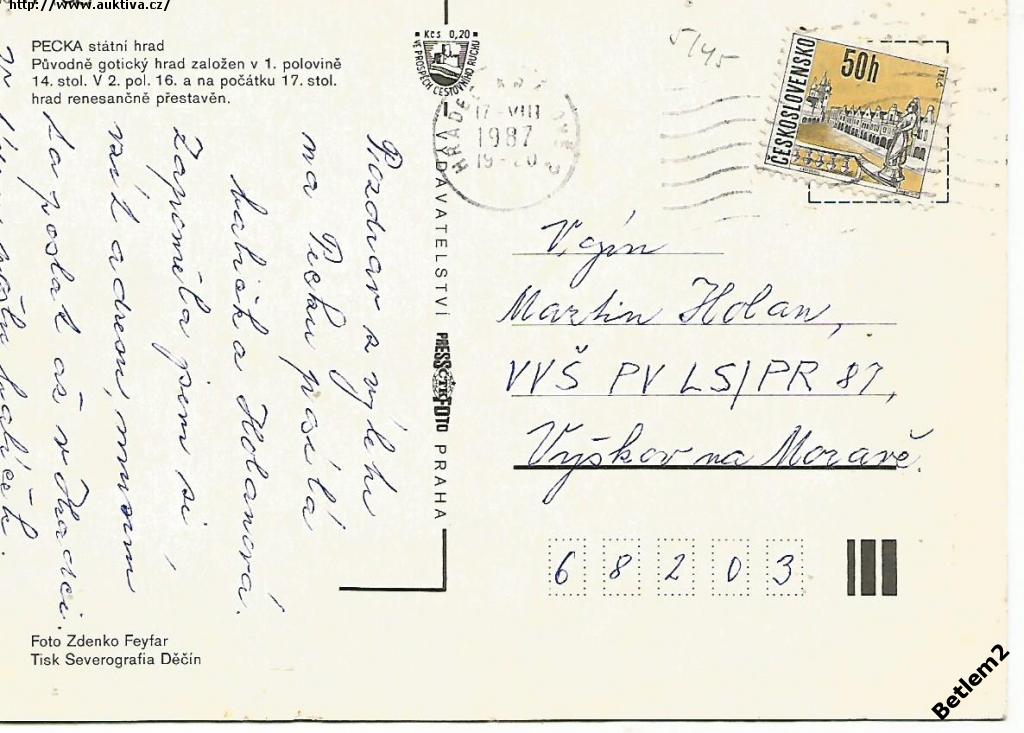 http://www.auktiva.cz/
PECKA státní hrad
Původně gotický hrad založen v 1. polovině
14. stol. V 2. pol. 16. a na počátku 17. stol.
hrad renesančně přestavěn.
Kčs 0,20
VE PROSPĚCH CESTOVNÍHO RUCHU
HRADEC KRÁLOVÉ 2
17.VIII
1987
19-20
5745
ČESKOSLOVENSKO
50h
Pozdrav z výletu
na Pecku posílá
babička Holanová.
Zapoměla jsem si
vzít adresu, musím
ho poslat až v Hradci.
babiček.
VYDAVATELSTVÍ PRESSFOTO PRAHA
ČTK
Vojín
Martin Holan,
VVŠ PV LS/PR 87,
Vyškov na Moravě.
68203
Foto Zdenko Feyfar
Tisk Severografia Děčín
Betlem2